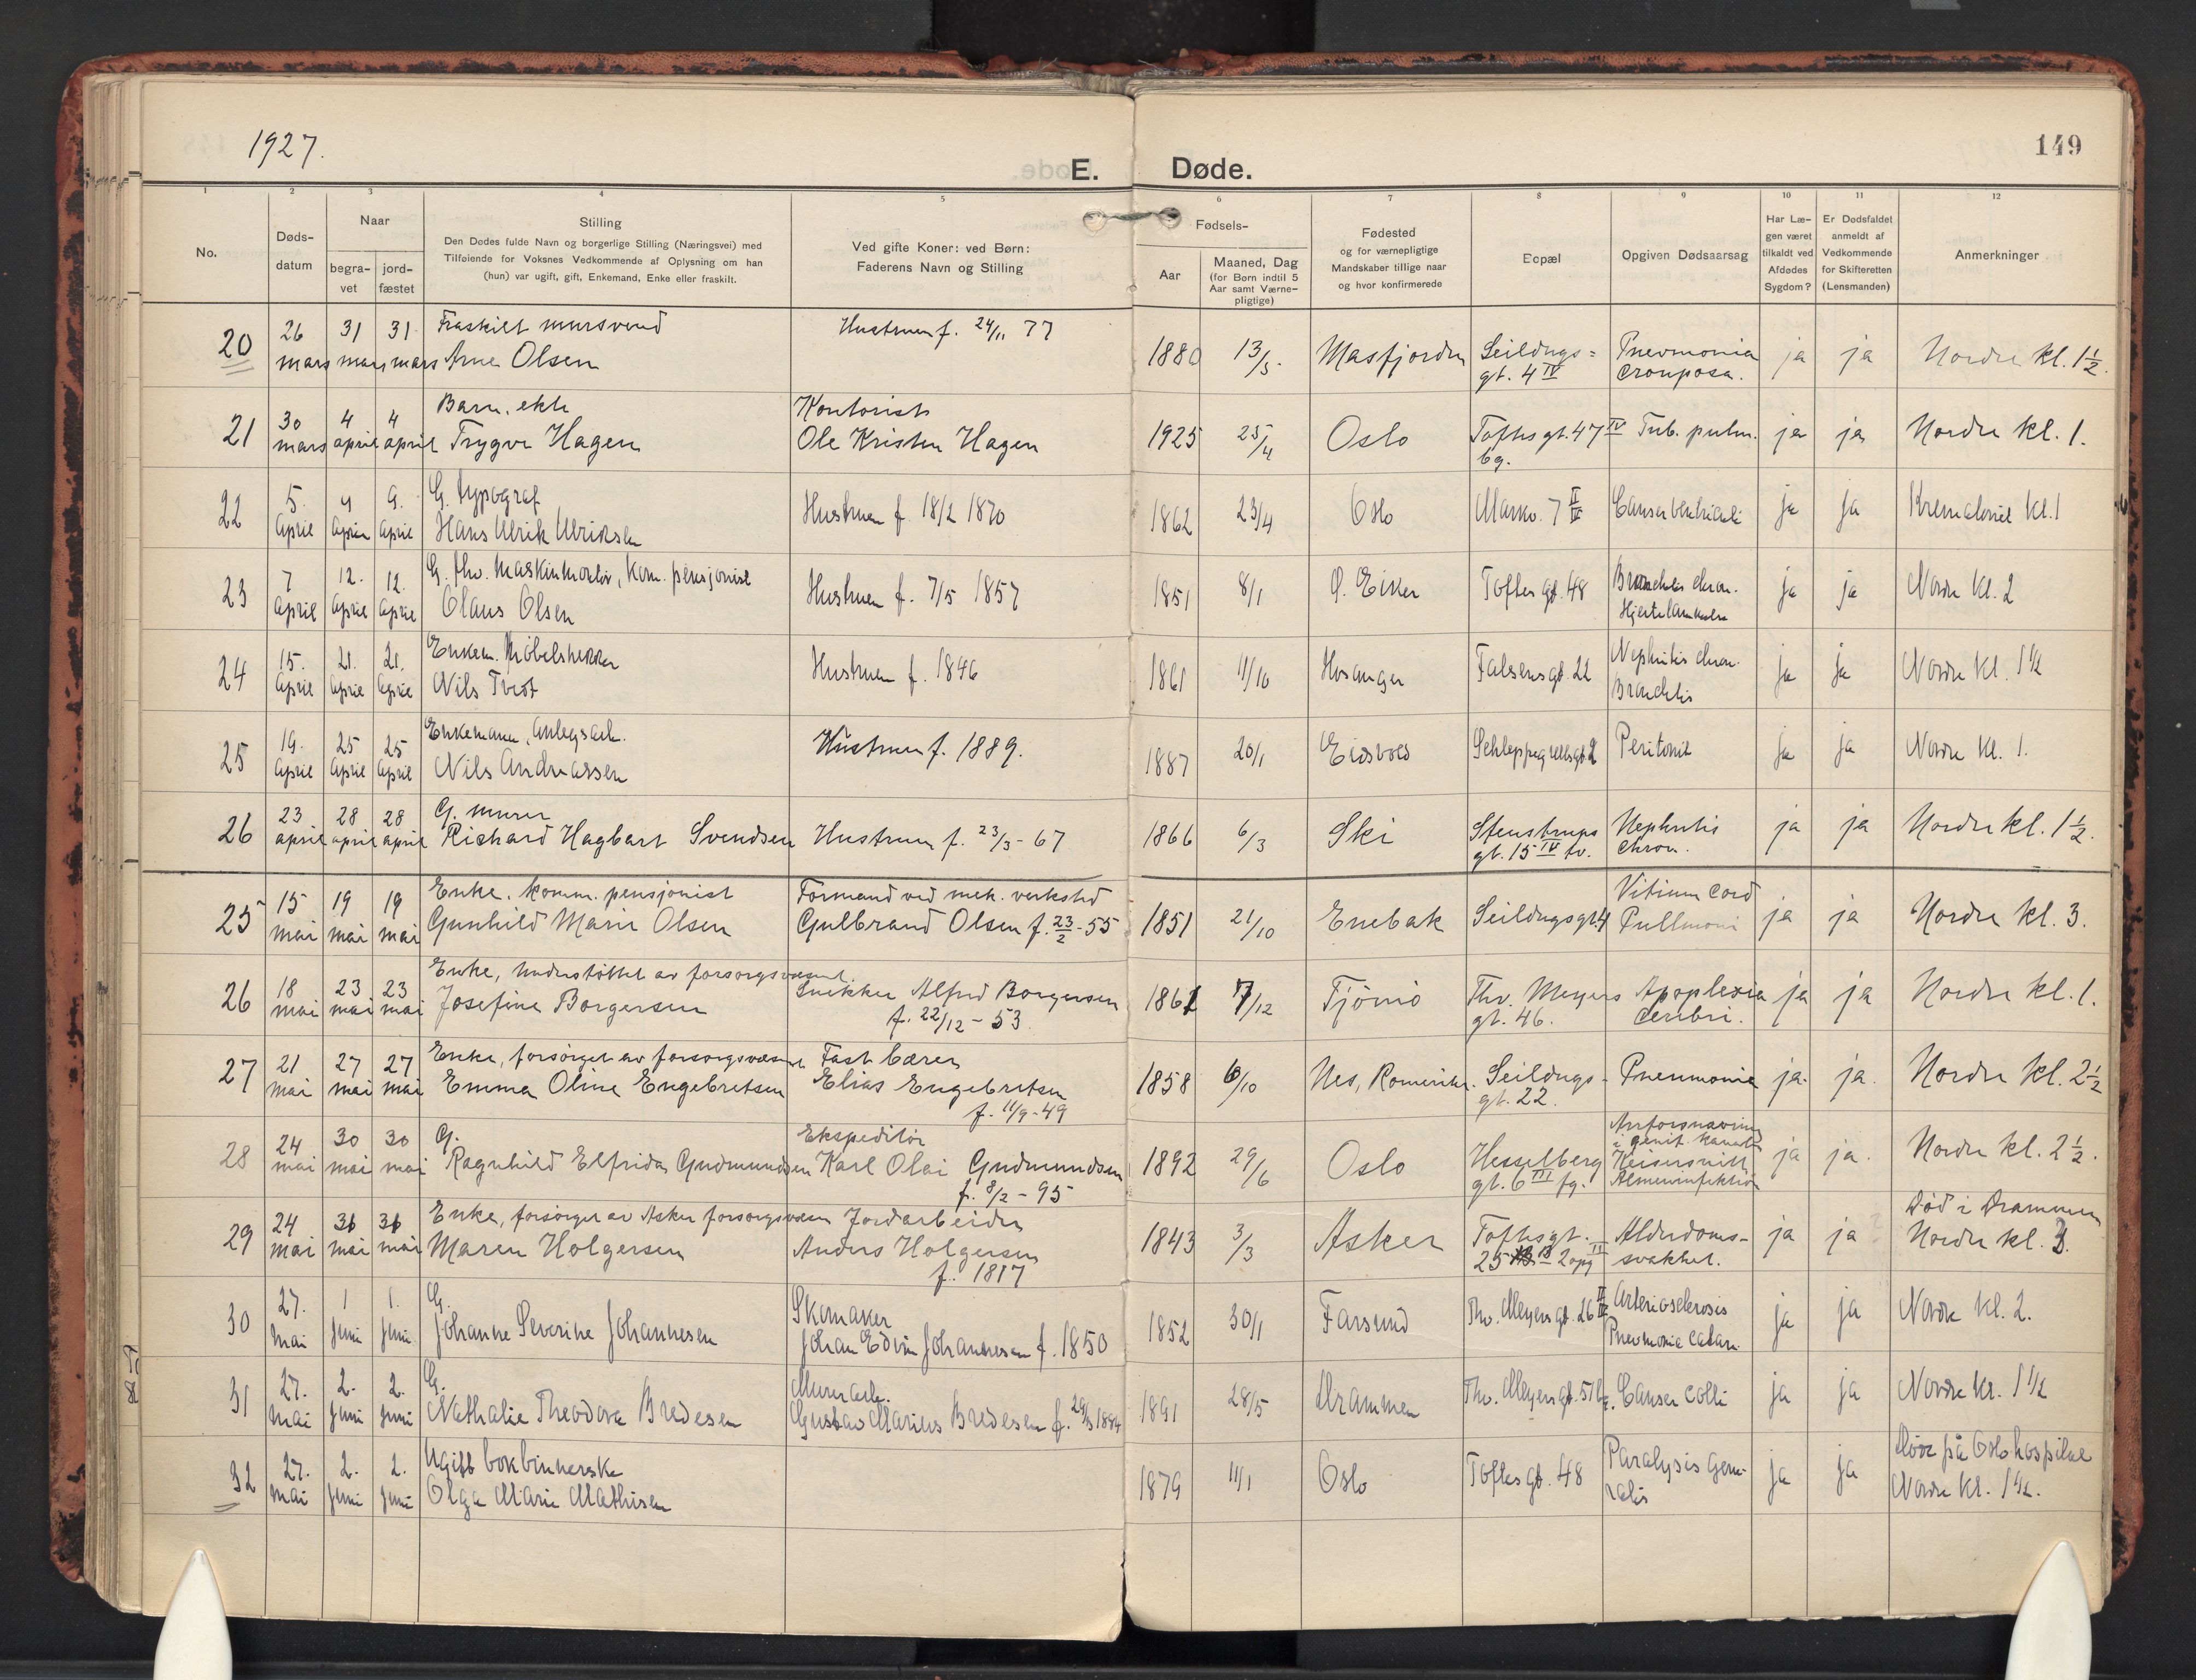 1927.
149
E. Døde.
1 2 3 4 5 6 7 8 9 10 11 12
No.
Døds-
datum
Naar
begra-
vet
jord-
fæstet
Stilling
Den Dødes fulde Navn og borgerlige Stilling (Næringsvei) med
Tilføiende for Voksnes Vedkommende af Oplysning om han
(hun) var ugift, gift, Enkemand, Enke eller fraskilt.
Ved gifte Koner: ved Børn:
Faderens Navn og Stilling
Fødsels-
Aar
Maaned, Dag
(for Børn indtil 5
Aar samt Værne-
pligtige)
Fødested
og for værnepligtige
Mandskaber tillige naar
og hvor konfirmerede
Bopæl
Opgiven Dødsaarsag
Har Læ-
gen været
tilkaldt ved
Afdødes
Sygdom?
Er Dødsfaldet
anmeldt af
Vedkommende
for Skifteretten
(Lensmanden)
Anmerkninger
20 26 31 31 Fraskilt mursvend Hustruen f. 24/11 77
mars mars mars Arne Olsen 1880 13/5. Masfjorden Seildugs= Pnevmonia ja ja Nordre kl. 1½.
gt. 4 IV crouposa.
21 30 4 4 Barn, ekte Kontorist
mars april april Trygve Hagen Ole Kristen Hagen 1925 25/4 Oslo Toftesgt. 47 IV Tub. pulm. ja ja Nordre kl. 1.
bg.
22 5. 9 9. G. typograf
april april april Hans Ulrik Ulriksen Hustruen f. 18/2 1870 1862 23/4 Oslo Markv. 7 II IV Cancer ventriculi ja ja Krematoriet kl. 1
23 7 12. 12. G. fhv. maskinmester, kom. pensjonist
april april april Olaus Olsen Hustruen f. 7/5 1857 1851 8/1 Ø. Eiker Toftes gt. 48 Bronchitis chron. ja ja Nordre kl. 2
24 15. 21. 21. Enkem. Møbelsnekker
april april april Nils Tveit Hustruen f. 1846 1861 11/10 Hosanger Falsensgt. 22 Nephritis chron. ja ja Nordre kl. 1½
Bronchitis
25 19. 25 25 Enkemann, anlegsarb.
april april april Nils Andreassen Hustruen f. 1889. 1887 20/1 Eidsvold Schleppegrellsgt. 2 Peritonit ja ja Nordre kl. 1.
26 23 28 28 G. murer
april april april Richard Hagbart Svendsen Hustruen f. 23/3-67 1866 6/3 Ski Stenstrups Nephritis ja ja Nordre kl. 1½.
gt. 15 IV tv. chron.
25 15 19 19 Enke, komm. pensjonist Formand ved mek. verksted
mai mai mai Gunhild Marie Olsen Gulbrand Olsen f. 23/2-55 1851 21/10 Enebak Seildugsgt. 4 Vitium cord ja ja Nordre kl. 3.
26 18 23 23 Enke, understöttet av forsorgsvæsenet
mai mai mai Josefine Borgersen Snekker Alfred Borgersen 1861 7/12 Tjömö Thv. Meyers Apoplexia ja ja Nordre kl. 1.
f. 22/12-53 gt. 46. cerebri.
27 21 27 27 Enke, forsörget av forsorgsvæsenet Fast bærer
mai mai mai Emma Oline Engebretsen Elias Engebretsen 1858 6/10 Nes, Romerike. Seildugs- Pneumonia ja. ja. Nordre kl. 2½
f. 11/9-49 gt. 22.
28 24 30 30 G. Ekspeditör
mai mai mai Ragnhild Elfrida Gudmundsen Karl Olai Gudmundsen 1892 29/6 Oslo Hesselberg Keisersnitt ja ja. Nordre kl. 2½.
f. 8/2-95 gt. 6 III fg. Almeninfektion
29 24 31 31 Enke, forsörget av Asker forsorgsvæsen Jordarbeider Död i Drammen
mai mai mai Maren Holgersen Anders Holgersen 1843 3/3 Asker Toftesgt. Alderdoms- ja ja Nordre kl. 3.
f. 1817 25 2 opg svakhet.
30 27. 1 1. G. Skomaker
mai juni juni Johanne Severine Johannesen Johan Edvin Johannesen f. 1850 1852 30/1 Farsund Thv. Meyers gt. 26 II IV Arteriosclerosis ja ja Nordre kl. 2.
Pnevmonia catarr.
31 27. 2. 2. G. Murerarb.
mai juni juni Nathalie Theodora Bredesen Gustav Marius Bredesen f. 29/3 1884 1891 28/5 Drammen Thv. Meyers gt. 51 Cancer colli ja ja Nordre kl. 1½
32 27. 2. 2. Ugift bokbinnerske Döde på Oslo hospital
mai juni juni Olga Marie Mathisen 1879 11/1 Oslo Toftes gt. 48 Paralysis gene- ja ja Nordre kl. 1½.
ralis